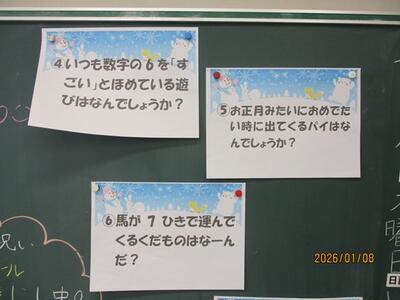 ④いつも数字の6を「す
ごい」とほめている遊
びはなんでしょうか？
⑤お正月みたいにおめでた
い時に出てくるパイはな
んでしょうか？
⑥馬が 7 ひきで運んで
くるくだものはなーん
だ？
祝い
ール
曜
日
2026/01/08